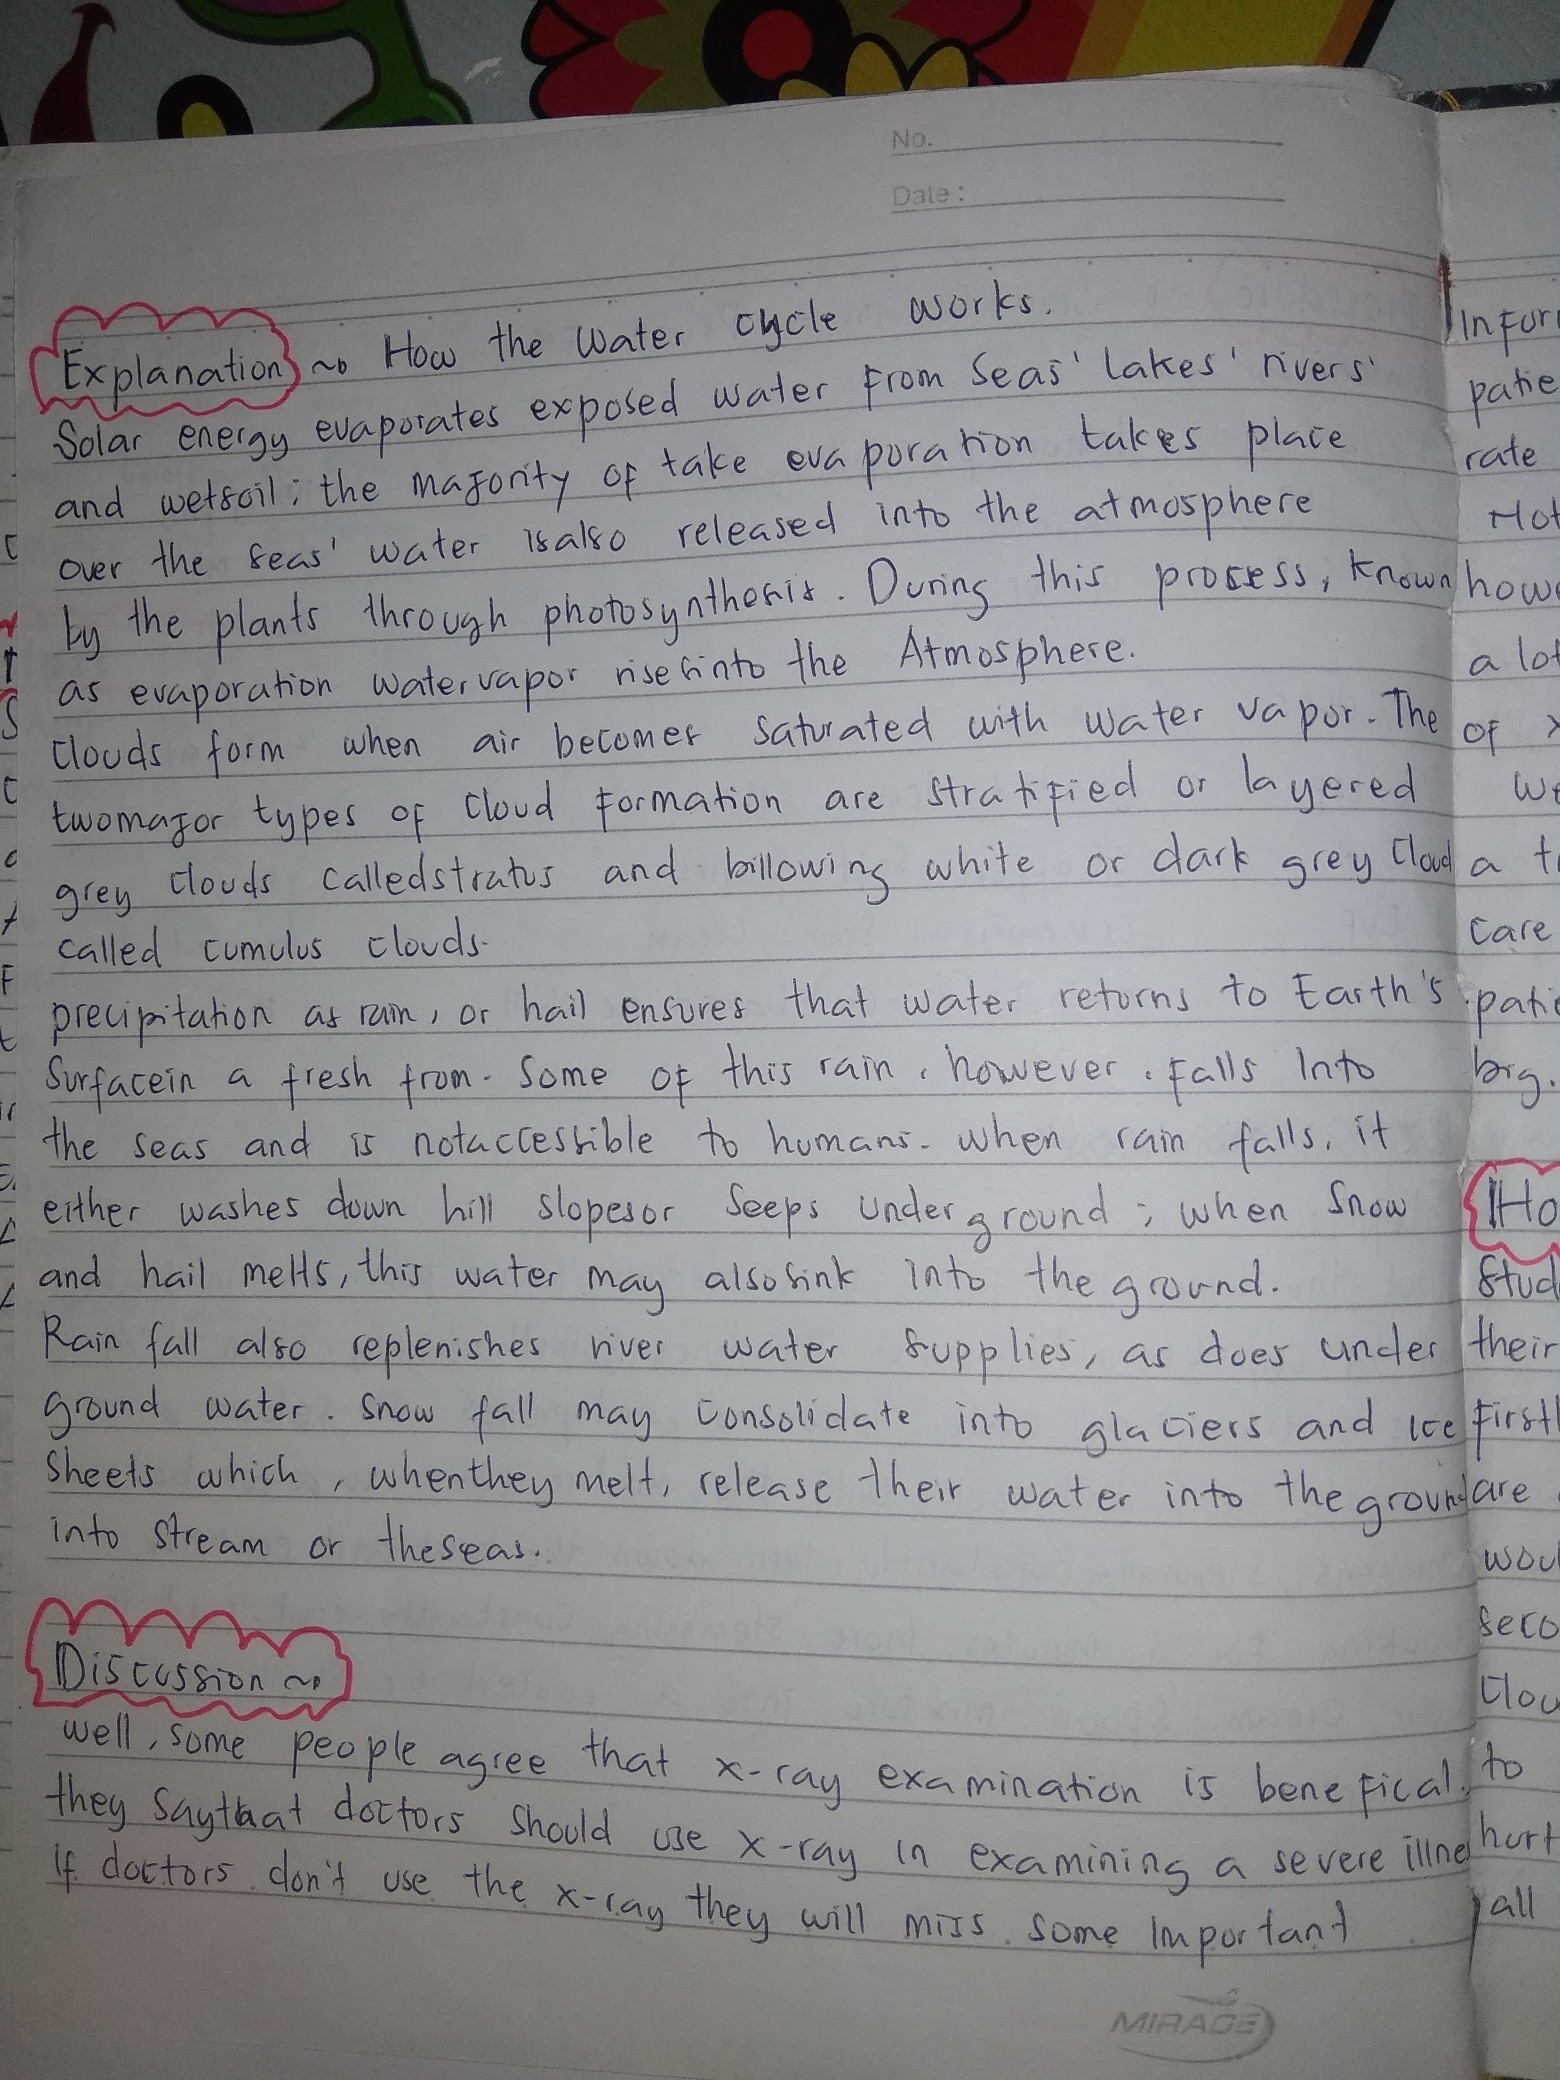 No.
Date:
Explanation ~ How the Water cycle works.
Solar energy evaporates exposed water from Seas' lakes' rivers'
and wetsoil; the majority of take evaporation takes place
over the seas' water isalso released into the atmosphere
by the plants through photosynthesis. During this process, known
as evaporation watervapor risesinto the Atmosphere.
Clouds form when air becomes saturated with water vapor. The
twomajor types of cloud formation are stratified or layered
grey clouds calledstratus and billowing white or dark grey cloud
called cumulus clouds.
precipitation as rain, or hail ensures that water returns to Earth's
Surfacein a fresh from. Some of this rain, however, falls Into
the seas and is notaccessible to humans. when rain falls, it
either washes down hill slopesor seeps underground; when Snow
and hail melts, this water may alsosink into the ground.
Rain fall also replenishes river water supplies, as does under
ground water. Snow fall may consolidate into glaciers and ice
sheets which, whenthey melt, release their water into the ground
into stream or theseas.
Discussion ~
well, some people agree that x-ray examination is benefical.
they saythat doctors should use x-ray in examining a severe illne
If doctors don't use the x-ray they will miss some Important
MIRAGE
Infor
patie
rate
Hot
how
a lot
of
We
a t
care
patie
big.
Ho
Stud
their
Firstl
are
woul
Seco
Clou
to
hurt
all